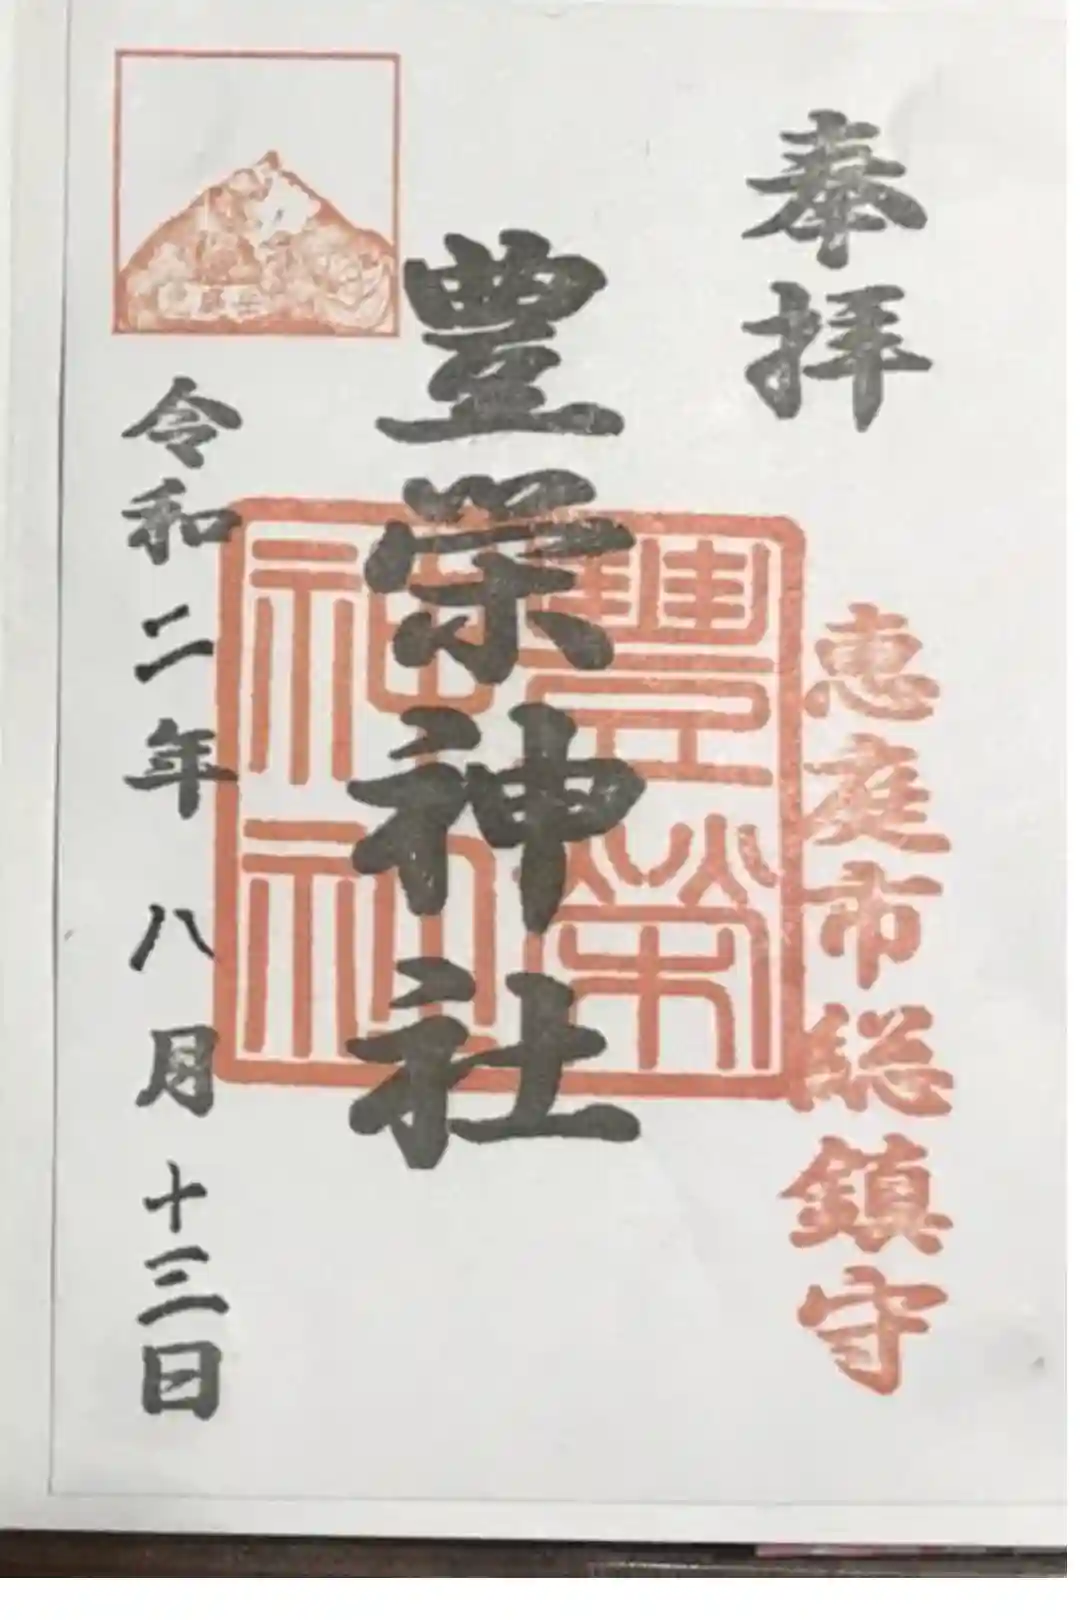 奉拝
恵庭市総鎮守
豊栄神社
豐榮
神社
令和二年 八月 十三日